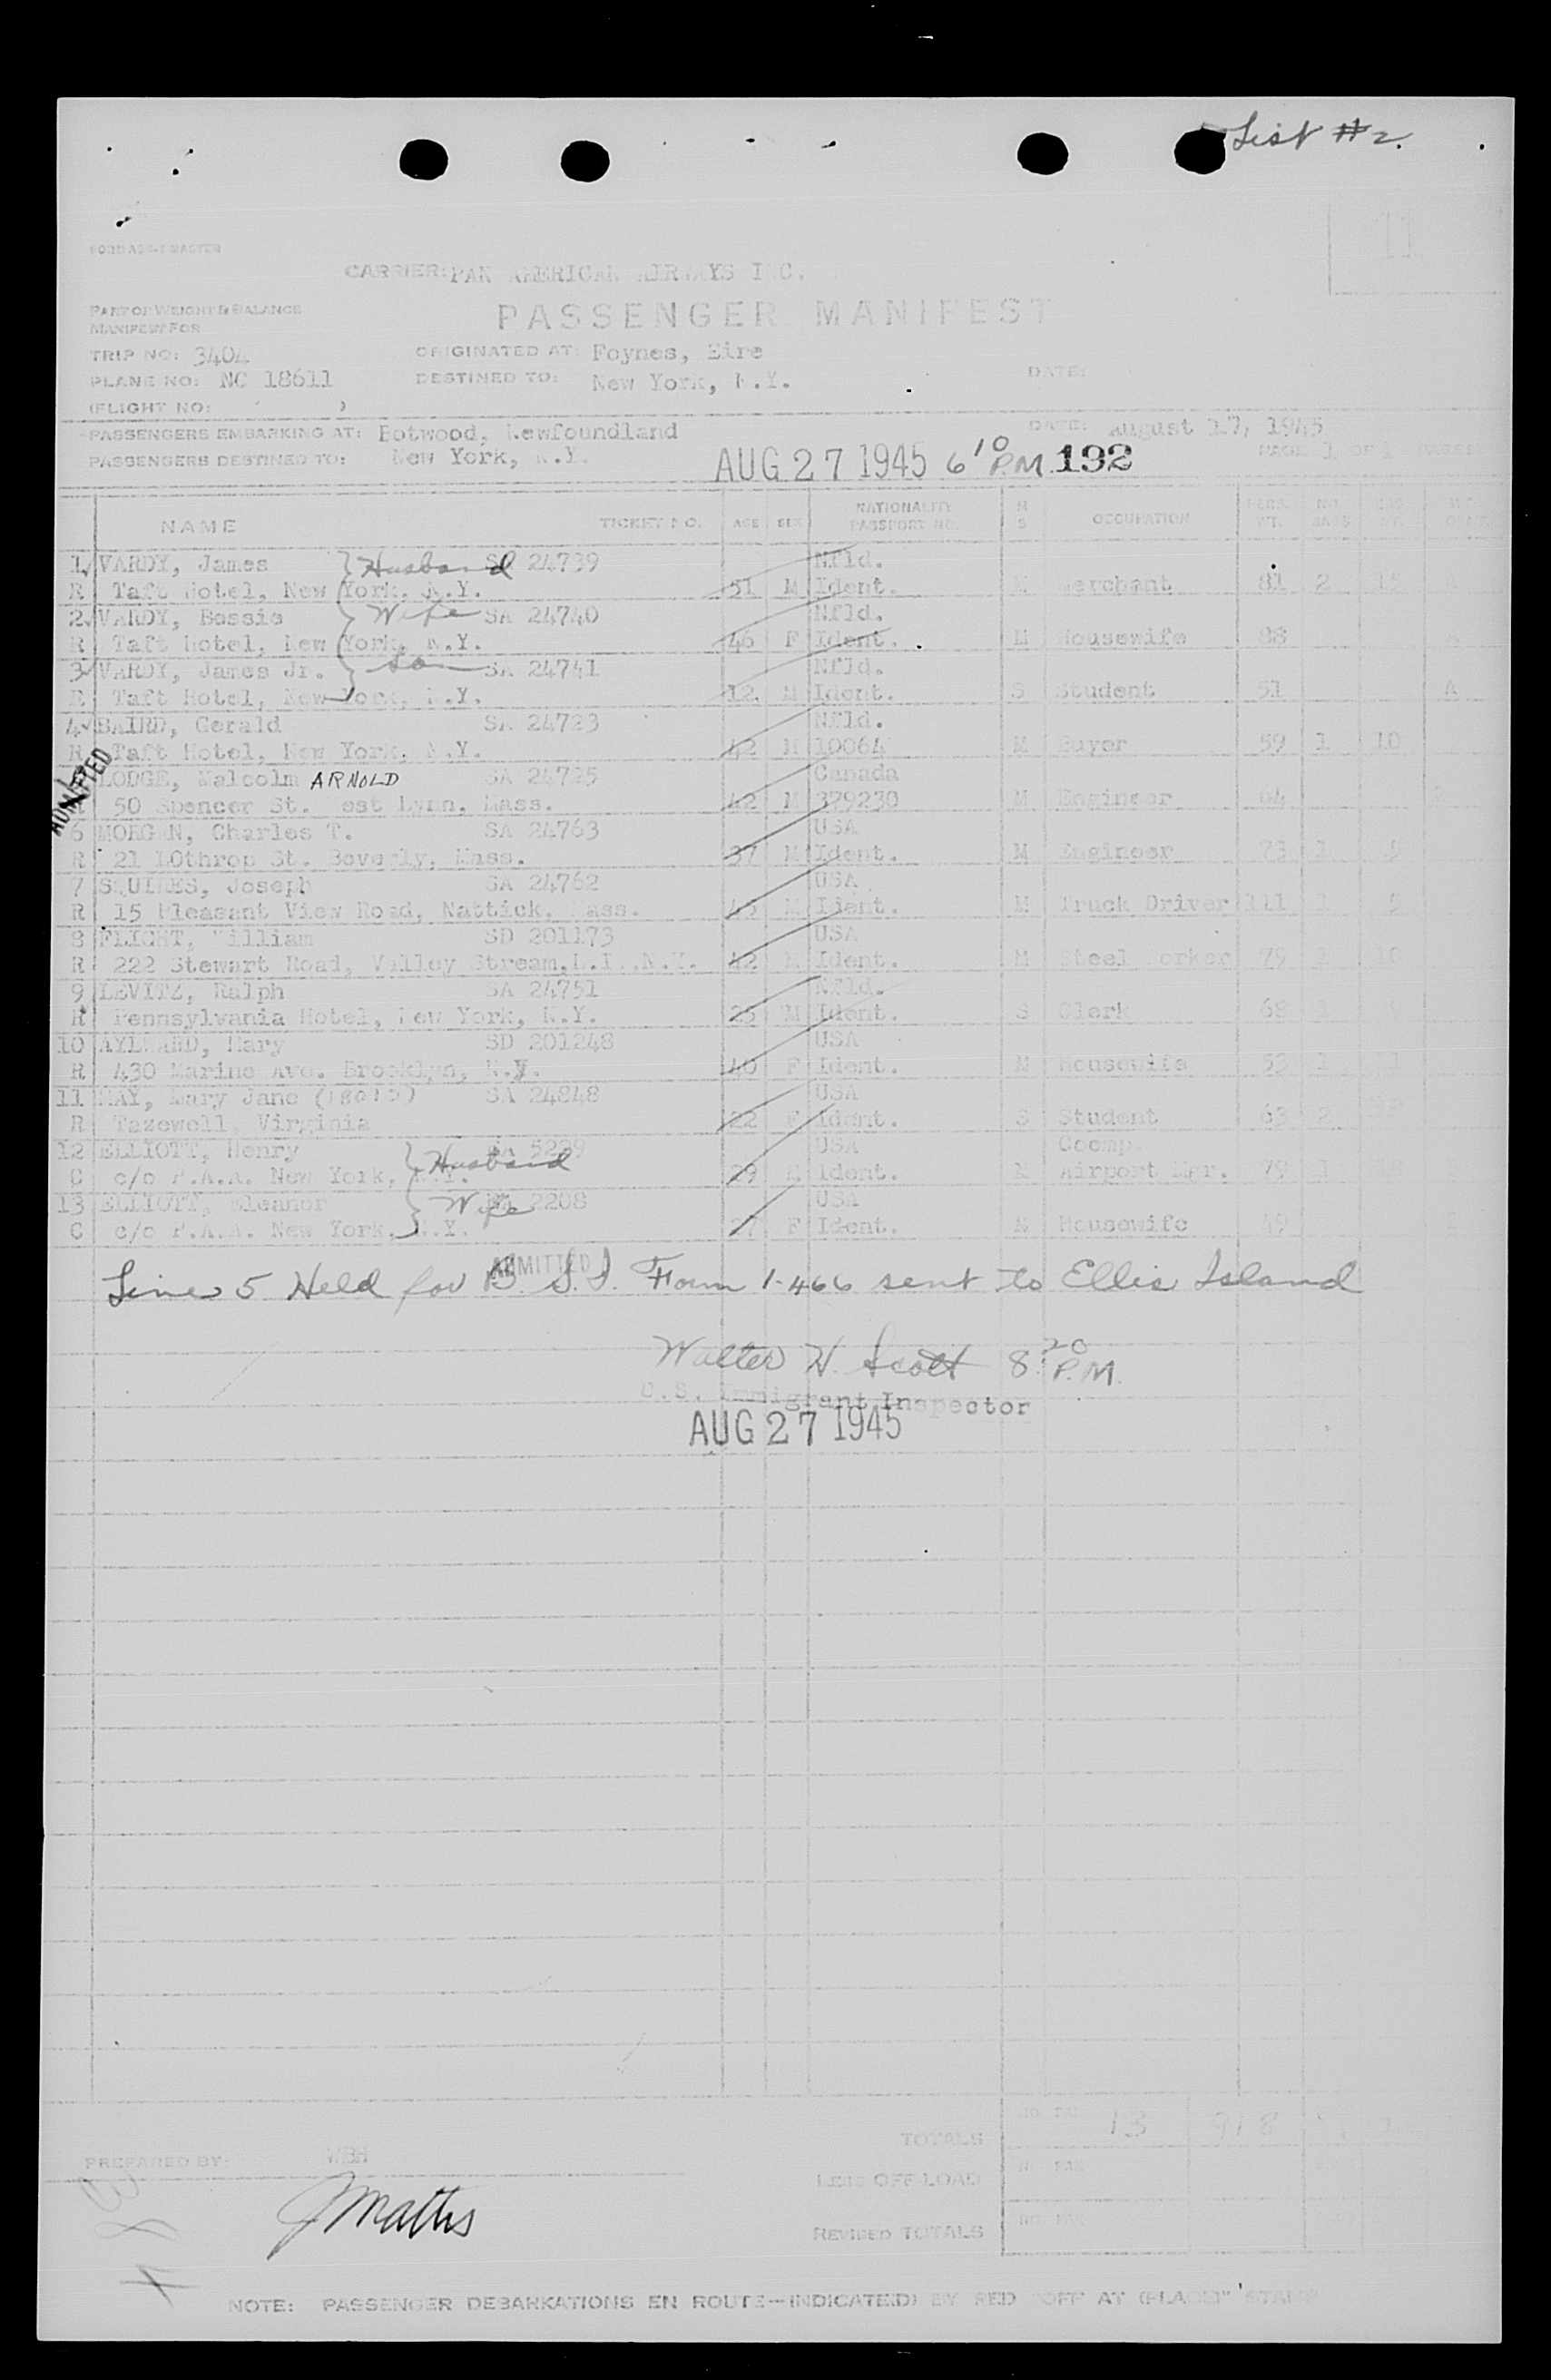 List #2.
11
FORD A34-1 MASTER
CARRIER: PAN AMERICAN AIRWAYS INC.
PART OF WEIGHT & BALANCE
MANIFEST FOR
PASSENGER MANIFEST
TRIP NO: 3404 ORIGINATED AT: Foynes, Eire
PLANE NO: NC 18611 DESTINED TO: New York, N.Y. DATE:
(FLIGHT NO: )
PASSENGERS EMBARKING AT: Botwood, Newfoundland DATE: august 27, 1945
PASSENGERS DESTINED TO: New York, N.Y. AUG 27 1945 6 10 P.M. 192 PAGE 1 OF 1
NAME TICKET NO. AGE SEX NATIONALITY PASSPORT NO. M S OCCUPATION PERS. WT. NO. BAGS
1 VARDY, James } Husband SA 24739 Nfld.
R Taft Hotel, New York, N.Y. 51 M Ident. M Merchant 81 2 15 A
2 VARDY, Bessie } Wife SA 24740 Nfld.
R Taft Hotel, New York, N.Y. 46 F Ident. M Housewife 88
3 VARDY, James Jr. } Son SA 24741 Nfld.
R Taft Hotel, New York, N.Y. 12 M Ident. S Student 51 A
4 BAIRD, Gerald SA 24723 Nfld.
R Taft Hotel, New York, N.Y. 42 M 10064 M Buyer 59 1 10
ADMITTED
LODGE, Malcolm ARNOLD SA 24725 Canada
50 Spencer St. West Lynn, Mass. 42 M 379230 M Engineer 64
6 MORGAN, Charles T. SA 24763 USA
R 21 LOthrop St. Beverly, Mass. 37 M Ident. M Engineer 73 1 5
7 SQUIRES, Joseph SA 24762 USA
R 15 Pleasant View Road, Nattick, Mass. 45 M Ident. M Truck Driver 111 1 5
8 FLIGHT, William SD 201173 USA
R 222 Stewart Road, Valley Stream, L.I., N.Y. 42 M Ident. M Steel Worker 79 1 10
9 LEVITZ, Ralph SA 24751 Nfld.
R Pennsylvania Hotel, New York, N.Y. 25 M Ident. S Clerk 68 1
10 AYLWARD, Mary SD 201248 USA
R 430 Marine Ave. Brooklyn, N.Y. 40 F Ident. M Housewife 53 1 11
11 MAY, Mary Jane SA 24848 USA
R Tazewell, Virginia 22 F Ident. S Student 63 2
12 ELLIOTT, Henry } Husband 5239 USA Cocmp.
C c/o P.A.A. New York, N.Y. 29 M Ident. M Airport Mgr. 79 1 18
13 ELLIOTT, Eleanor } Wife 2208 USA
C c/o P.A.A. New York, N.Y. 27 F Ident. M Housewife 49
ADMITTED
Line 5 Held for B.S.I. Form 1-466 sent to Ellis Island
Walter H. Scott 8:20 P.M.
U.S. Immigrant Inspector
AUG 27 1945
TOTALS 13 918
PREPARED BY: WBH
LESS OFF-LOAD
J Mathis
REVISED TOTALS
NOTE: PASSENGER DEBARKATIONS EN ROUTE—INDICATE(D) BY RED "OFF AT (PLACE)" STAMP